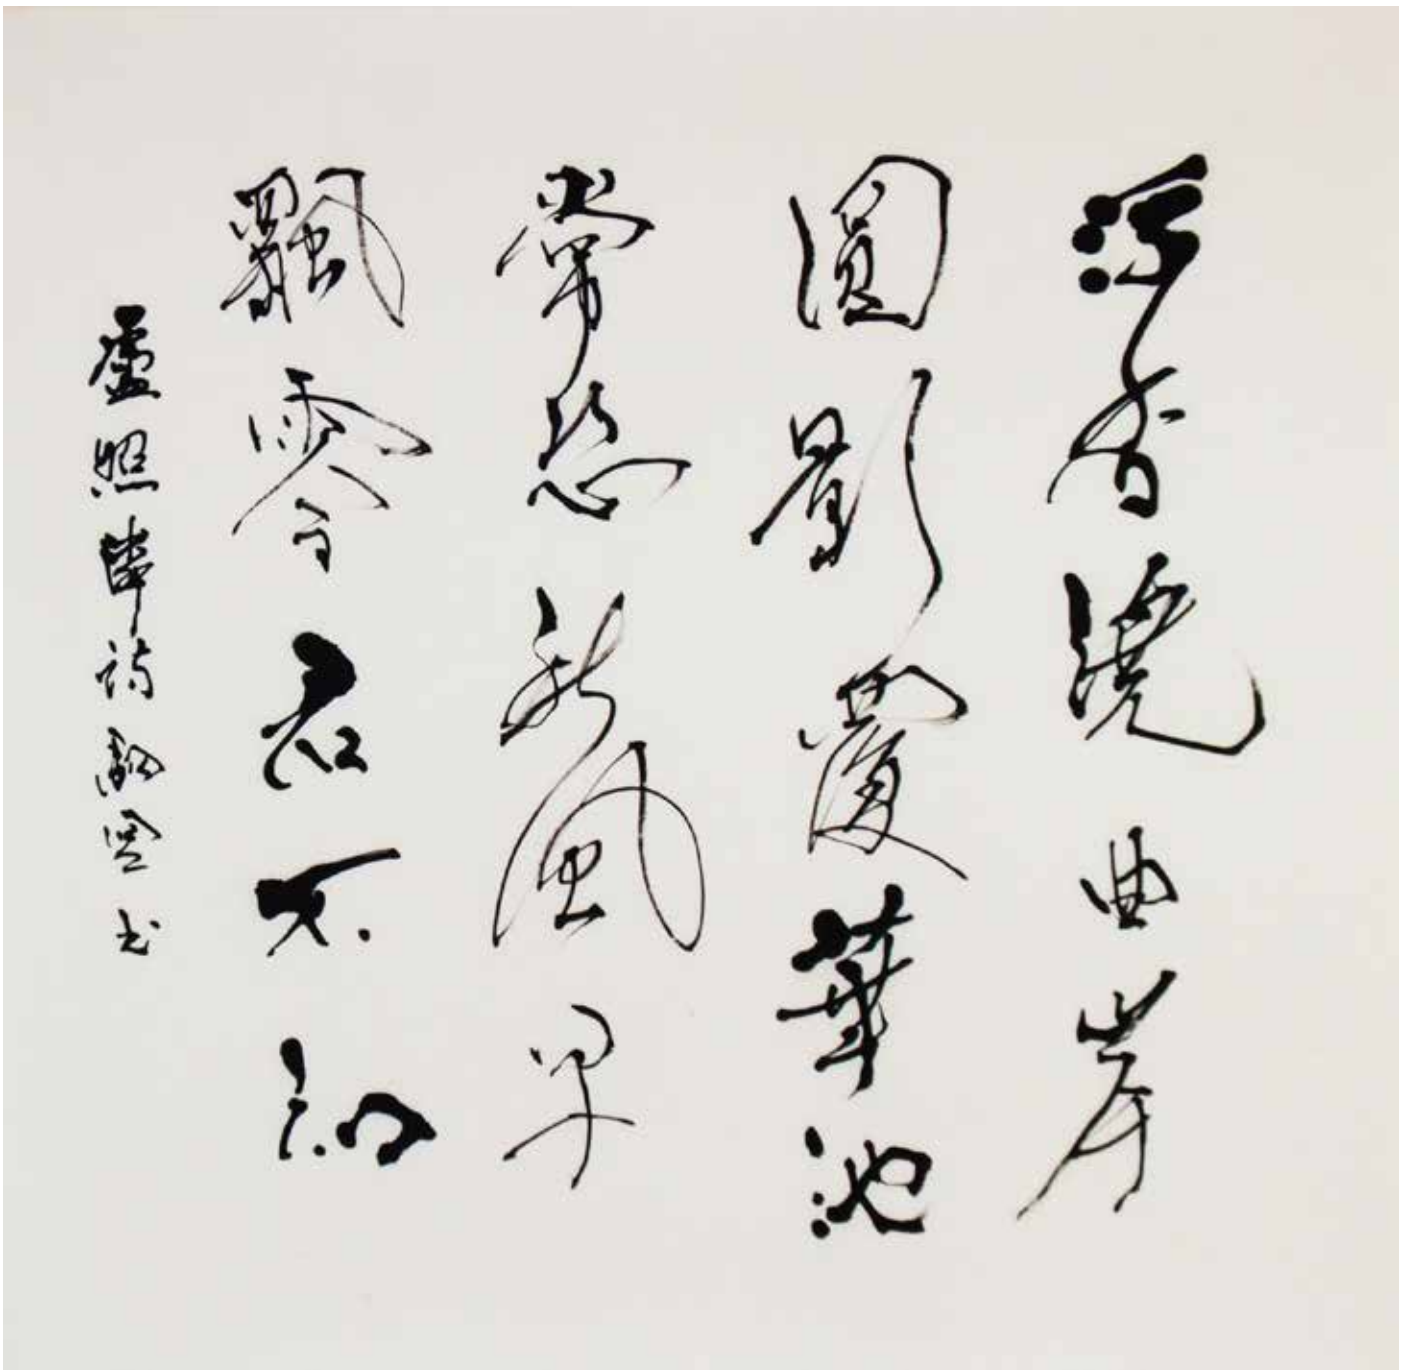 浮香澆曲岸
圓影覆華池
常恐秋風早
飄零君不知
盧照鄰詩 書